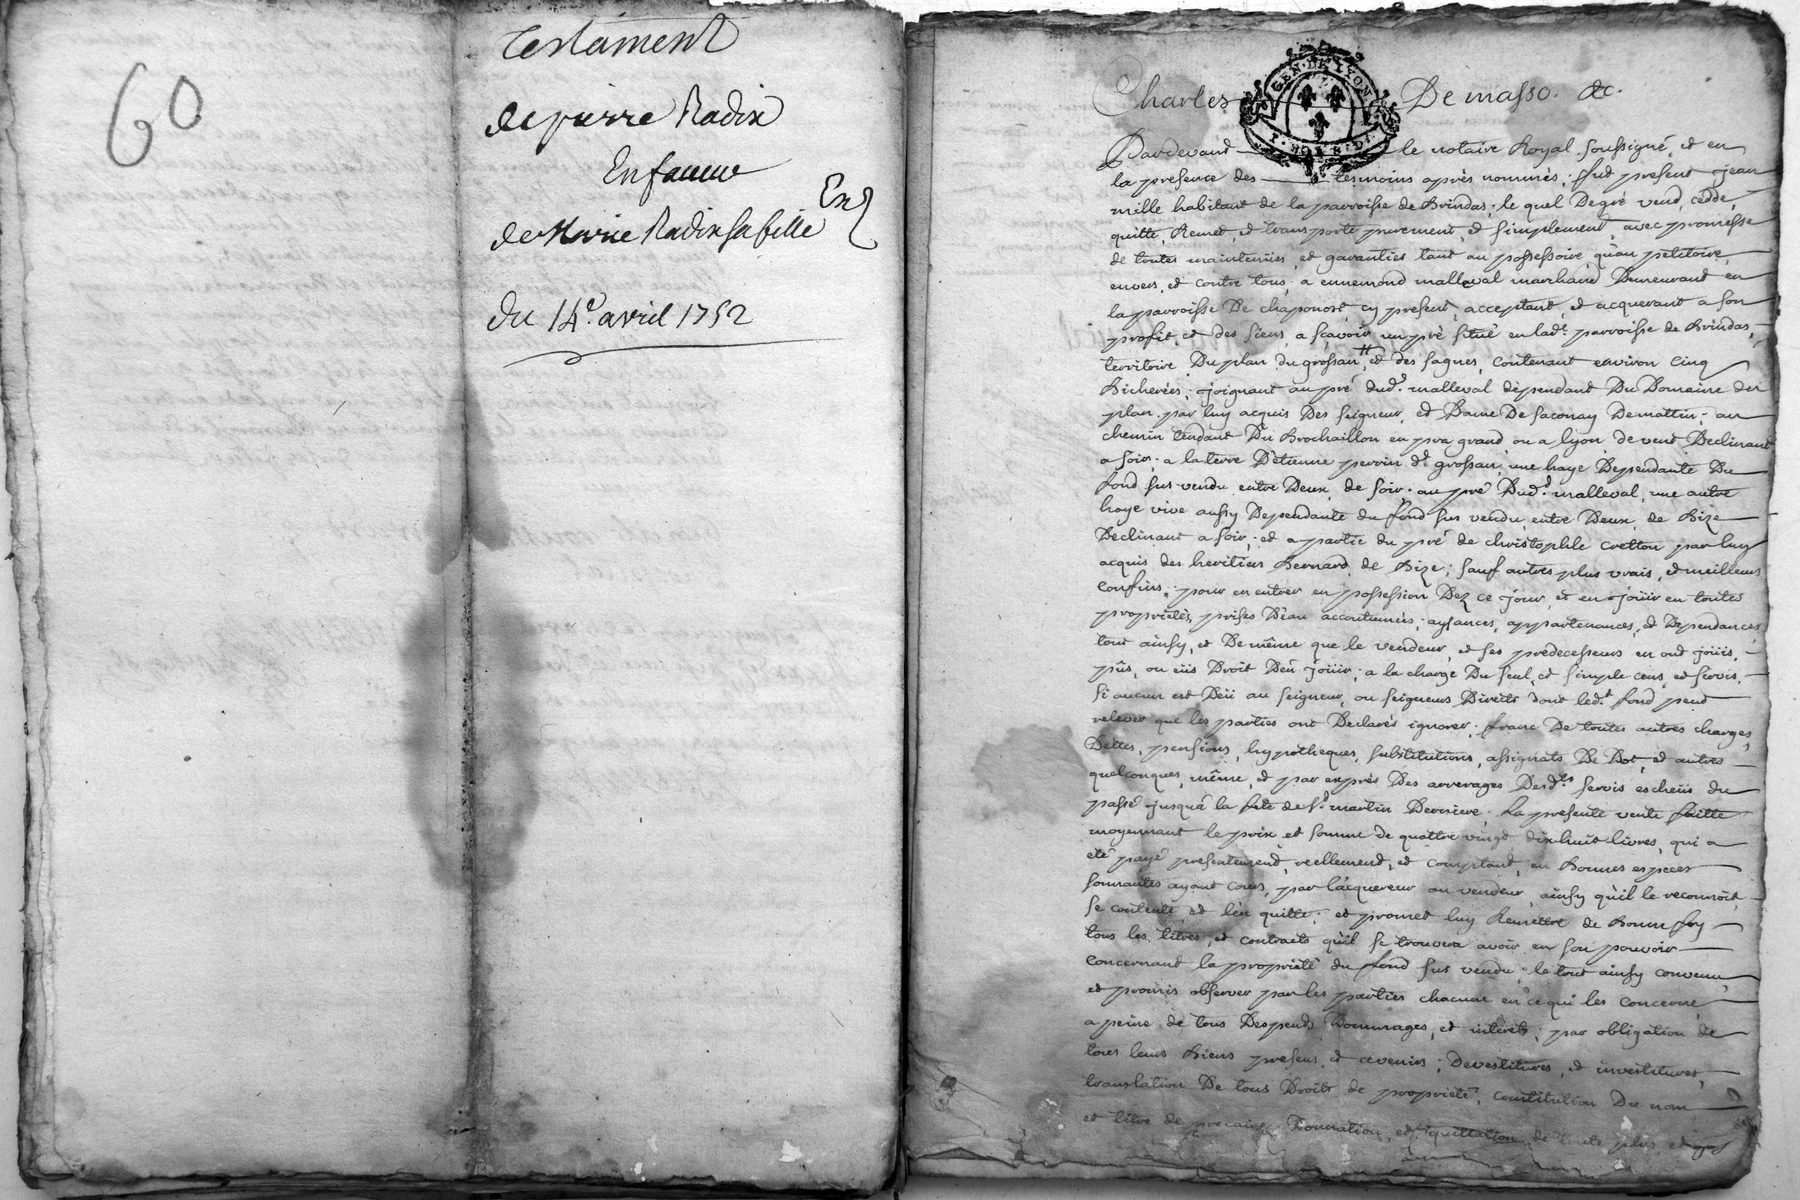 60
Testament
de pierre Radix
En faveur
de Marie Radix sa fille Exp
du 14e. avril 1752
Charles De masso. &c.
GEN. DE LYON
Pardevant le notaire Royal soussigné, et en
la presence des tesmoins après nommés; fut present jean
mille habitant de la parroisse de Brindas; le quel Degré vend, cedde,
quitte, Remet, et transporte purement, et simplement, avec promesse
de toutes maintenües, et garanties tant au possessoire qu'au petitoire,
envers, et contre tous; a ennemond malleval marchand Demeurant en
la parroisse De chaponost, cy present, acceptant, et acquerant a son
profit, et des siens, a sçavoir un pré situé en lad.e parroisse de Brindas,
territoire Du plan du grossan, et des fagnes, contenant environ cinq
Bicherées; joignant au pré dud.t malleval dépendant Du Domaine du
plan, par luy acquis Des seigneur, et Dame De saconay; au
chemin tendant Du Brochaillon en pra grand ou a lyon de vent Declinant
a soir; a la terre D'etienne perrin d.t grossan, une haye Dependante Du
fond sus vendu, entre Deux, de soir; au pré Dud.t malleval, une autre
haye vive aussy Dependante du fond sus vendu, entre Deux, de Bize
Declinant a soir; et a partie du pré de christophle cretton par luy
acquis des heritiers Bernard, de Bize; sauf autres plus vrais, et meilleurs
confins; pour en entrer en possession Dez ce jour, et en joüir en toutes
propriétés, prises D'eau accoutumées, aysances, appartenances, et Dependances,
tout ainsy, et De même que le vendeur, et ses predecesseurs en ont joüis,
pûs, ou eüs Droit D'en joüir; a la charge Du seul, et simple cens, et servis,
si aucun est Deü au seigneur, ou seigneurs Directs dont led.t fond peut
relever que les parties ont Declarés ignorer; franc De toutes autres charges,
Dettes, pensions, hypotheques, substitutions, assignats De Dot, et autres
quelconques, même, et par exprés Des arrerages Desd.ts servis escheüs du
passé jusqu'a la fete de s.t martin Derniere; La presente vente faitte
moyennant le prix et somme de quattre vingt dixhuit livres, qui a
été payé presentement, reellement, et comptant, en Bonnes especes
sonnantes ayant cours, par l'acquereur au vendeur, ainsy qu'il le reconnoit,
se contente, et l'en quitte; et promet luy Remettre de Bonne foy
tous les titres, et contracts qu'il se trouvera avoir en son pouvoir
concernant la propriété du fond sus vendu; le tout ainsy convenu,
et promis observer par les parties chacune en ce qui les concerne
a peine de tous Despends, Dommages, et interets; par obligation de
tous leurs Biens presens, et avenirs; Devestitures, et investitures,
translation De tous Droits de propriété, constitution Du nom
et titre de precaire, Donnation, et quittation de toute plus